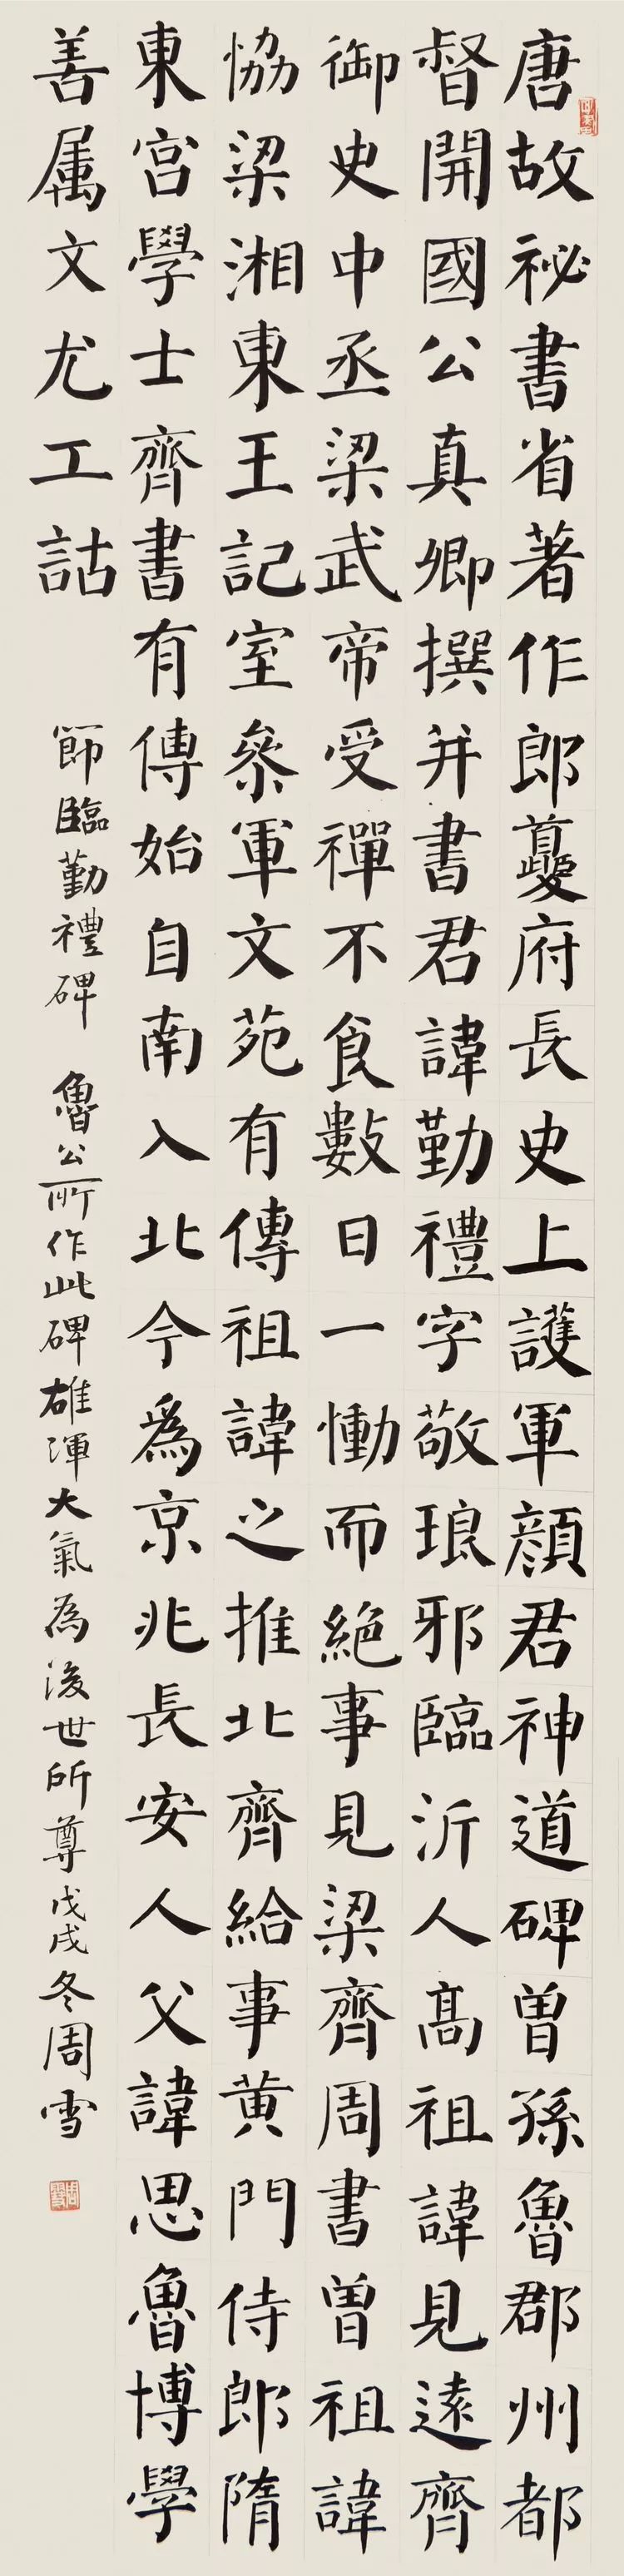 唐故祕書省著作郎夔府長史上護軍顔君神道碑曾孫魯郡州都
督開國公真卿撰并書君諱勤禮字敬琅邪臨沂人高祖諱見遠齊
御史中丞梁武帝受禪不食數日一慟而絶事見梁齊周書曾祖諱
恊梁湘東王記室叅軍文苑有傳祖諱之推北齊給事黄門侍郎隋
東宫學士齊書有傳始自南入北今爲京兆長安人父諱思魯博學
善属文尤工詁
節臨勤禮碑 魯公所作此碑雄渾大氣為後世所尊戊戌冬周雪
周雪